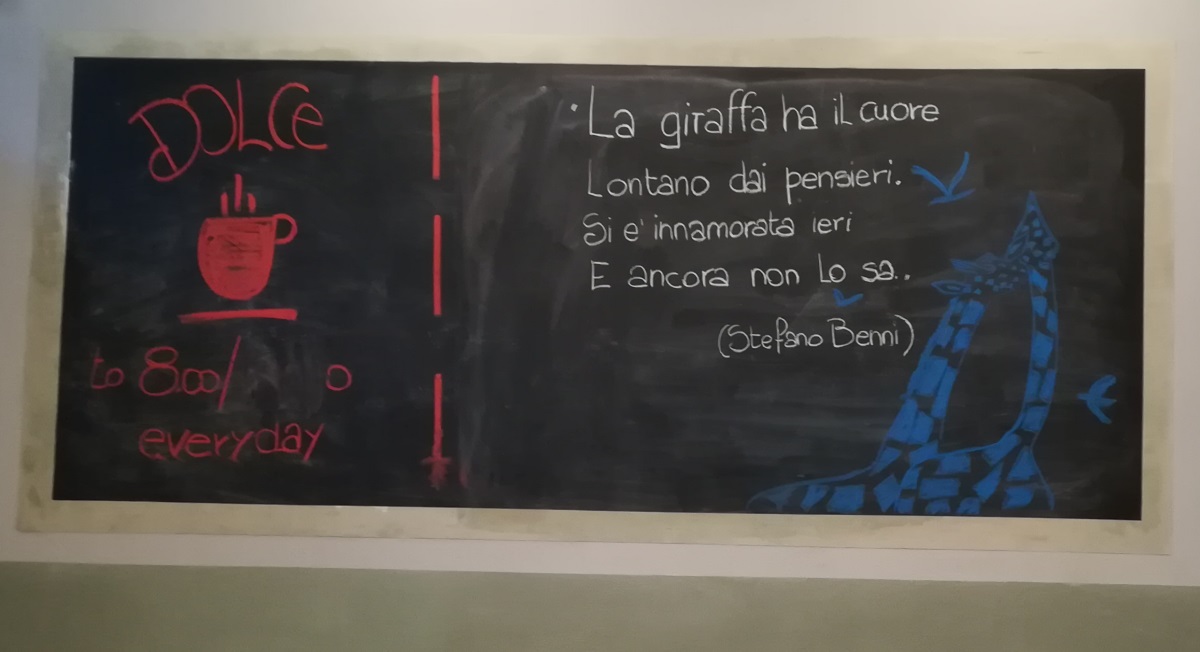 DOLCE
to 8.00/ 0
everyday
La giraffa ha il cuore
Lontano dai pensieri.
Si e' innamorata ieri
E ancora non lo sa..
(Stefano Benni)